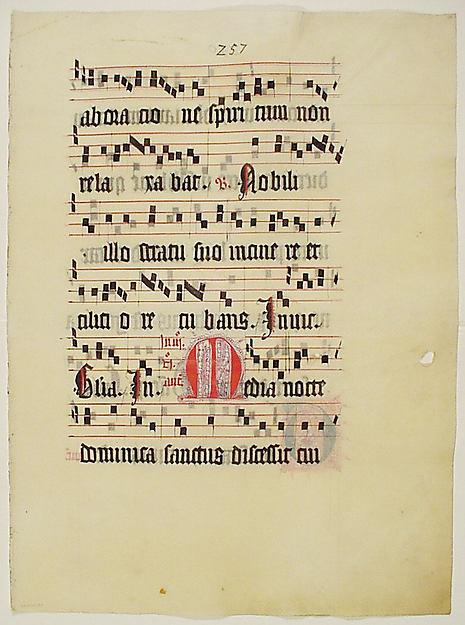 257
ab ora cio ne spiri tum non
rela xa bat. V. Nobili
illo stratu suo cinere et
cilici o re cu bans. Invic.
Glia. In. Media nocte
dominica sanctus discessit cui